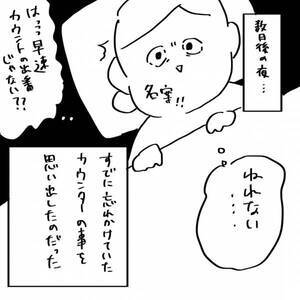 数日後の夜…
ねれない
‥‥
はっっ早速
カウントの出番
じゃない??
すでに忘れかけていた
カウンターの事を
思い出したのだった